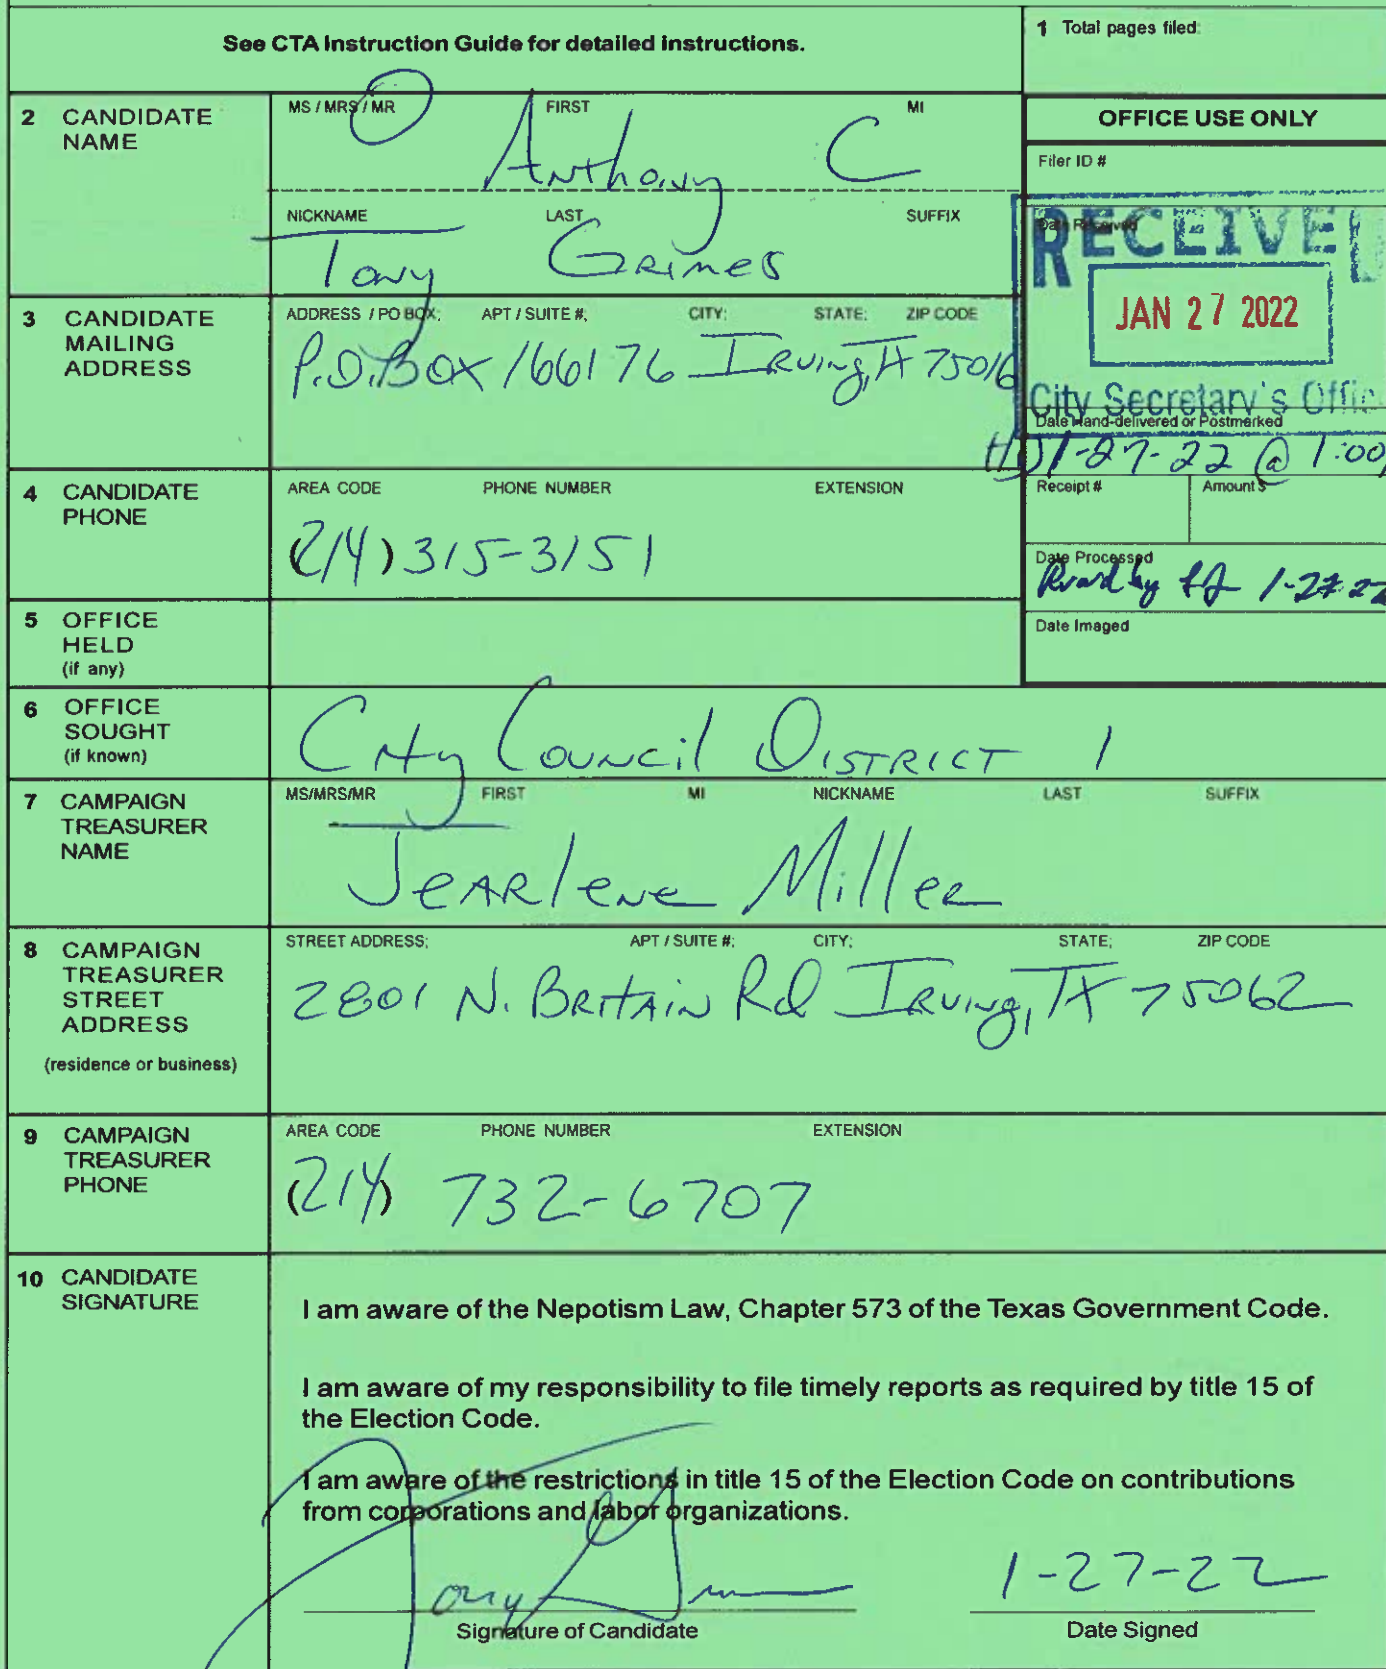 See CTA Instruction Guide for detailed instructions.
1 Total pages filed:
2 CANDIDATE NAME
MS / MRS / MR FIRST MI
Anthony C
NICKNAME LAST SUFFIX
Tony Grimes
OFFICE USE ONLY
Filer ID #
Date Received
RECEIVE
JAN 27 2022
City Secretary's Offic
3 CANDIDATE MAILING ADDRESS
ADDRESS / PO BOX; APT / SUITE #; CITY; STATE; ZIP CODE
P.O. Box 166176 Irving, TX 75016
Date Hand-delivered or Postmarked
HD 1-27-22 @ 1:00
4 CANDIDATE PHONE
AREA CODE PHONE NUMBER EXTENSION
(214) 315-3151
Receipt # Amount $
Date Processed
by 1-27-22
Date Imaged
5 OFFICE HELD (if any)
6 OFFICE SOUGHT (if known)
City Council District 1
7 CAMPAIGN TREASURER NAME
MS/MRS/MR FIRST MI NICKNAME LAST SUFFIX
Jearlene Miller
8 CAMPAIGN TREASURER STREET ADDRESS (residence or business)
STREET ADDRESS; APT / SUITE #; CITY; STATE; ZIP CODE
2801 N. Britain Rd Irving, TX 75062
9 CAMPAIGN TREASURER PHONE
AREA CODE PHONE NUMBER EXTENSION
(214) 732-6707
10 CANDIDATE SIGNATURE
I am aware of the Nepotism Law, Chapter 573 of the Texas Government Code.
I am aware of my responsibility to file timely reports as required by title 15 of
the Election Code.
I am aware of the restrictions in title 15 of the Election Code on contributions
from corporations and labor organizations.
Tony G 1-27-22
Signature of Candidate Date Signed